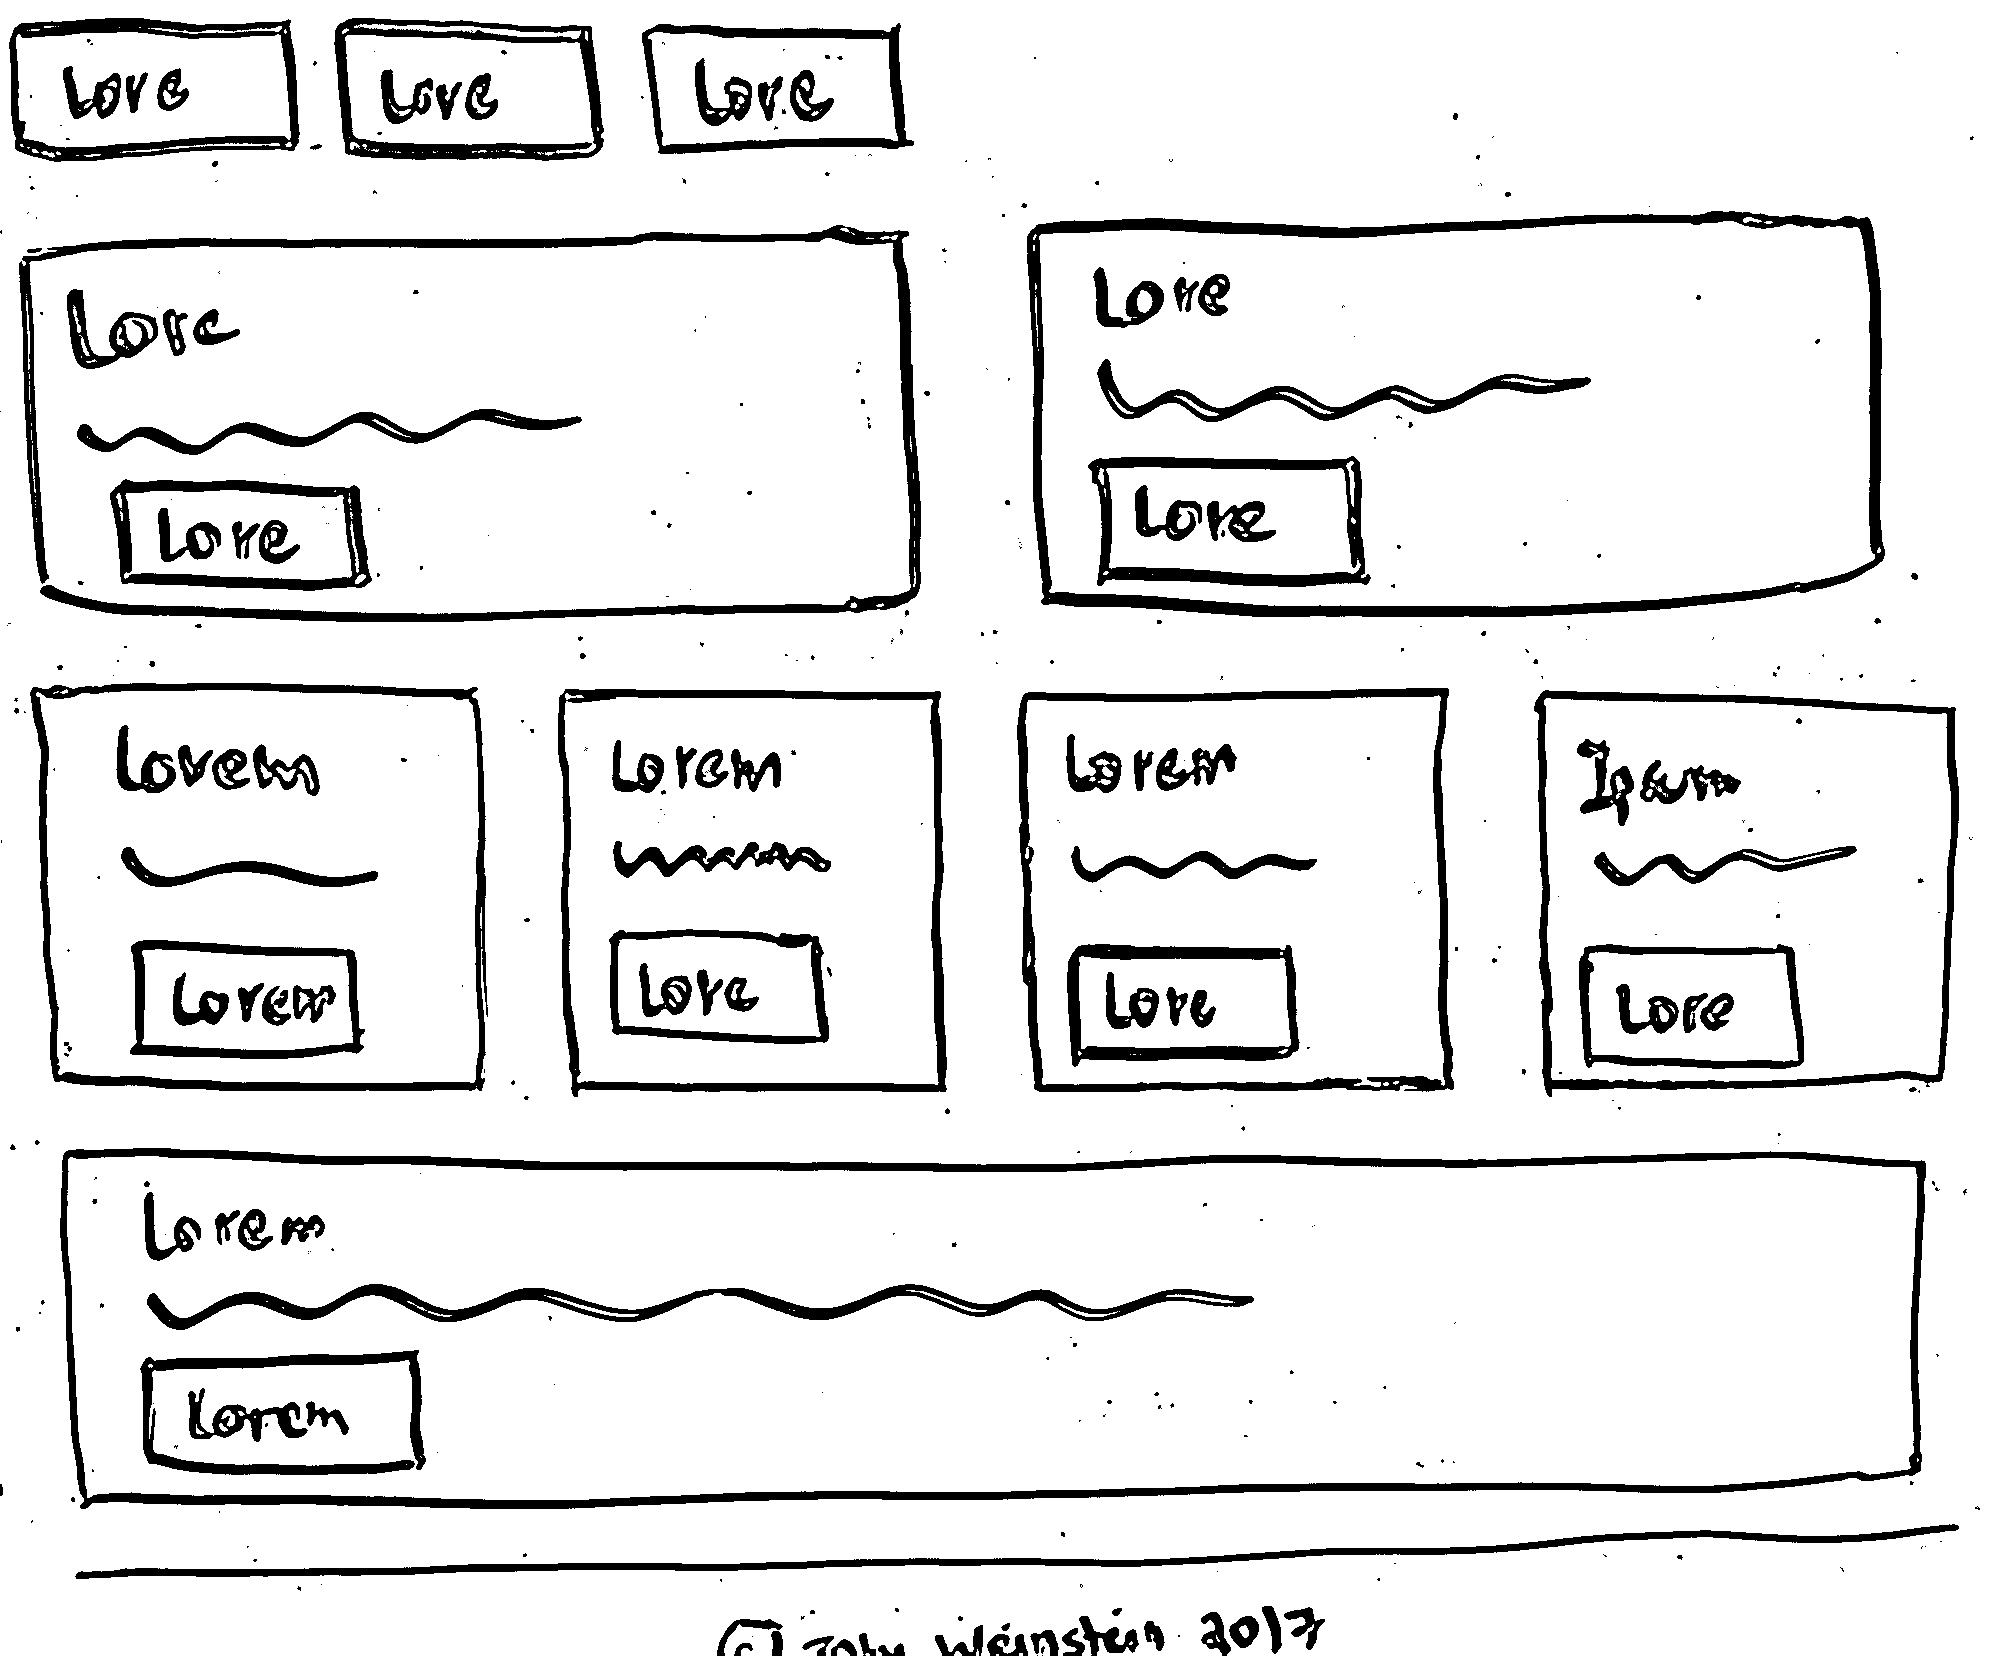 Lore Lore Lore
Lore
Lore
Lore
Lore
Lorem
Lorem
Lorem
Ipsum
Lorem
Lore
Lore
Lore
Lorem
Lorem
© John Weinstein 2017